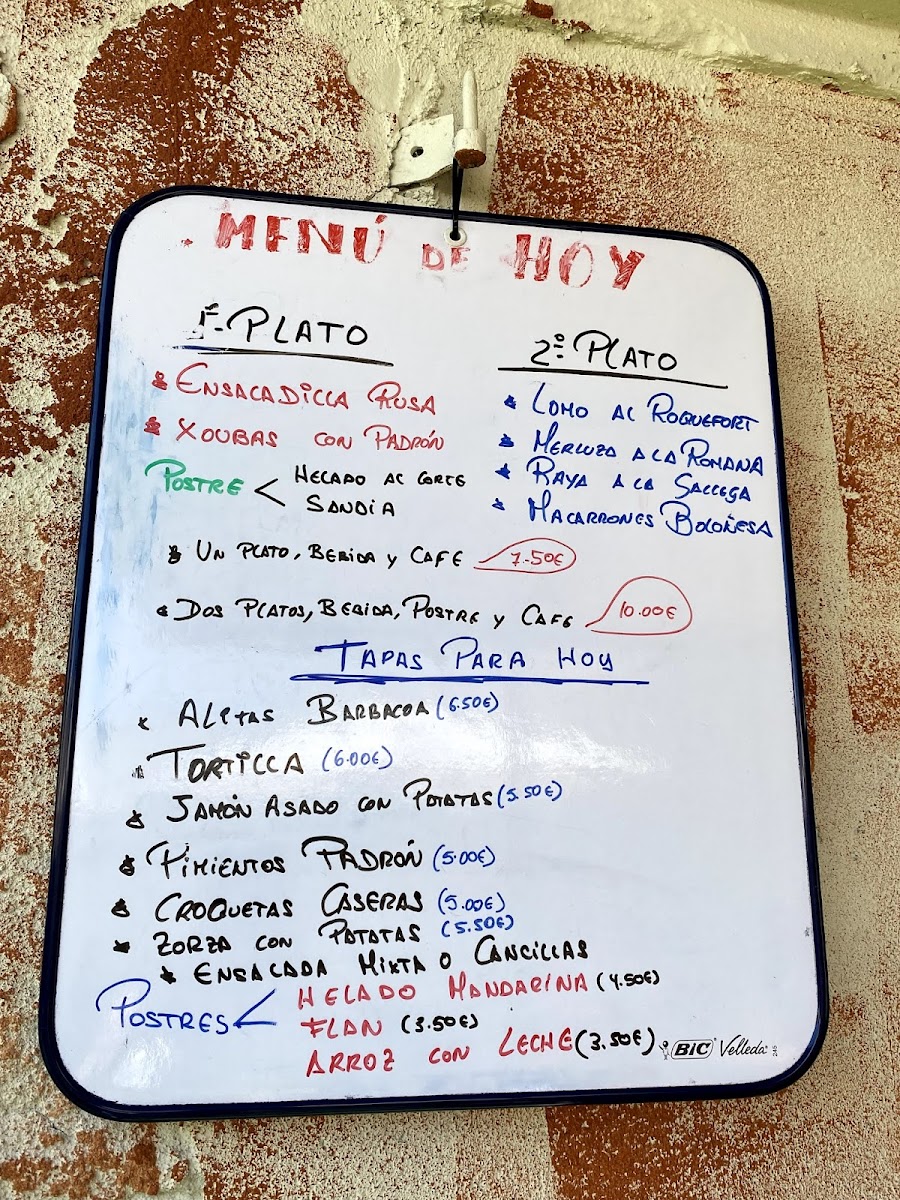 MENÚ DE HOY
1º PLATO
ENSALADILLA RUSA
XOUBAS CON PADRÓN
POSTRE < HELADO AL CORTE
SANDIA
2º PLATO
LOMO AL ROQUEFORT
MERLUZA A LA ROMANA
RAYA A LA GALLEGA
MACARRONES BOLOÑESA
UN PLATO, BEBIDA Y CAFE 7.50€
DOS PLATOS, BEBIDA, POSTRE Y CAFE 10.00€
TAPAS PARA HOY
ALITAS BARBACOA (6.50€)
TORTILLA (6.00€)
JAMÓN ASADO CON POTATAS (5.50€)
PIMIENTOS PADRÓN (5.00€)
CROQUETAS CASERAS (5.00€)
ZORZA CON PATATAS (5.50€)
ENSALADA MIXTA O CANCILLAS
POSTRES < HELADO MANDARINA (4.50€)
FLAN (3.50€)
ARROZ CON LECHE (3.50€)
BIC Velleda